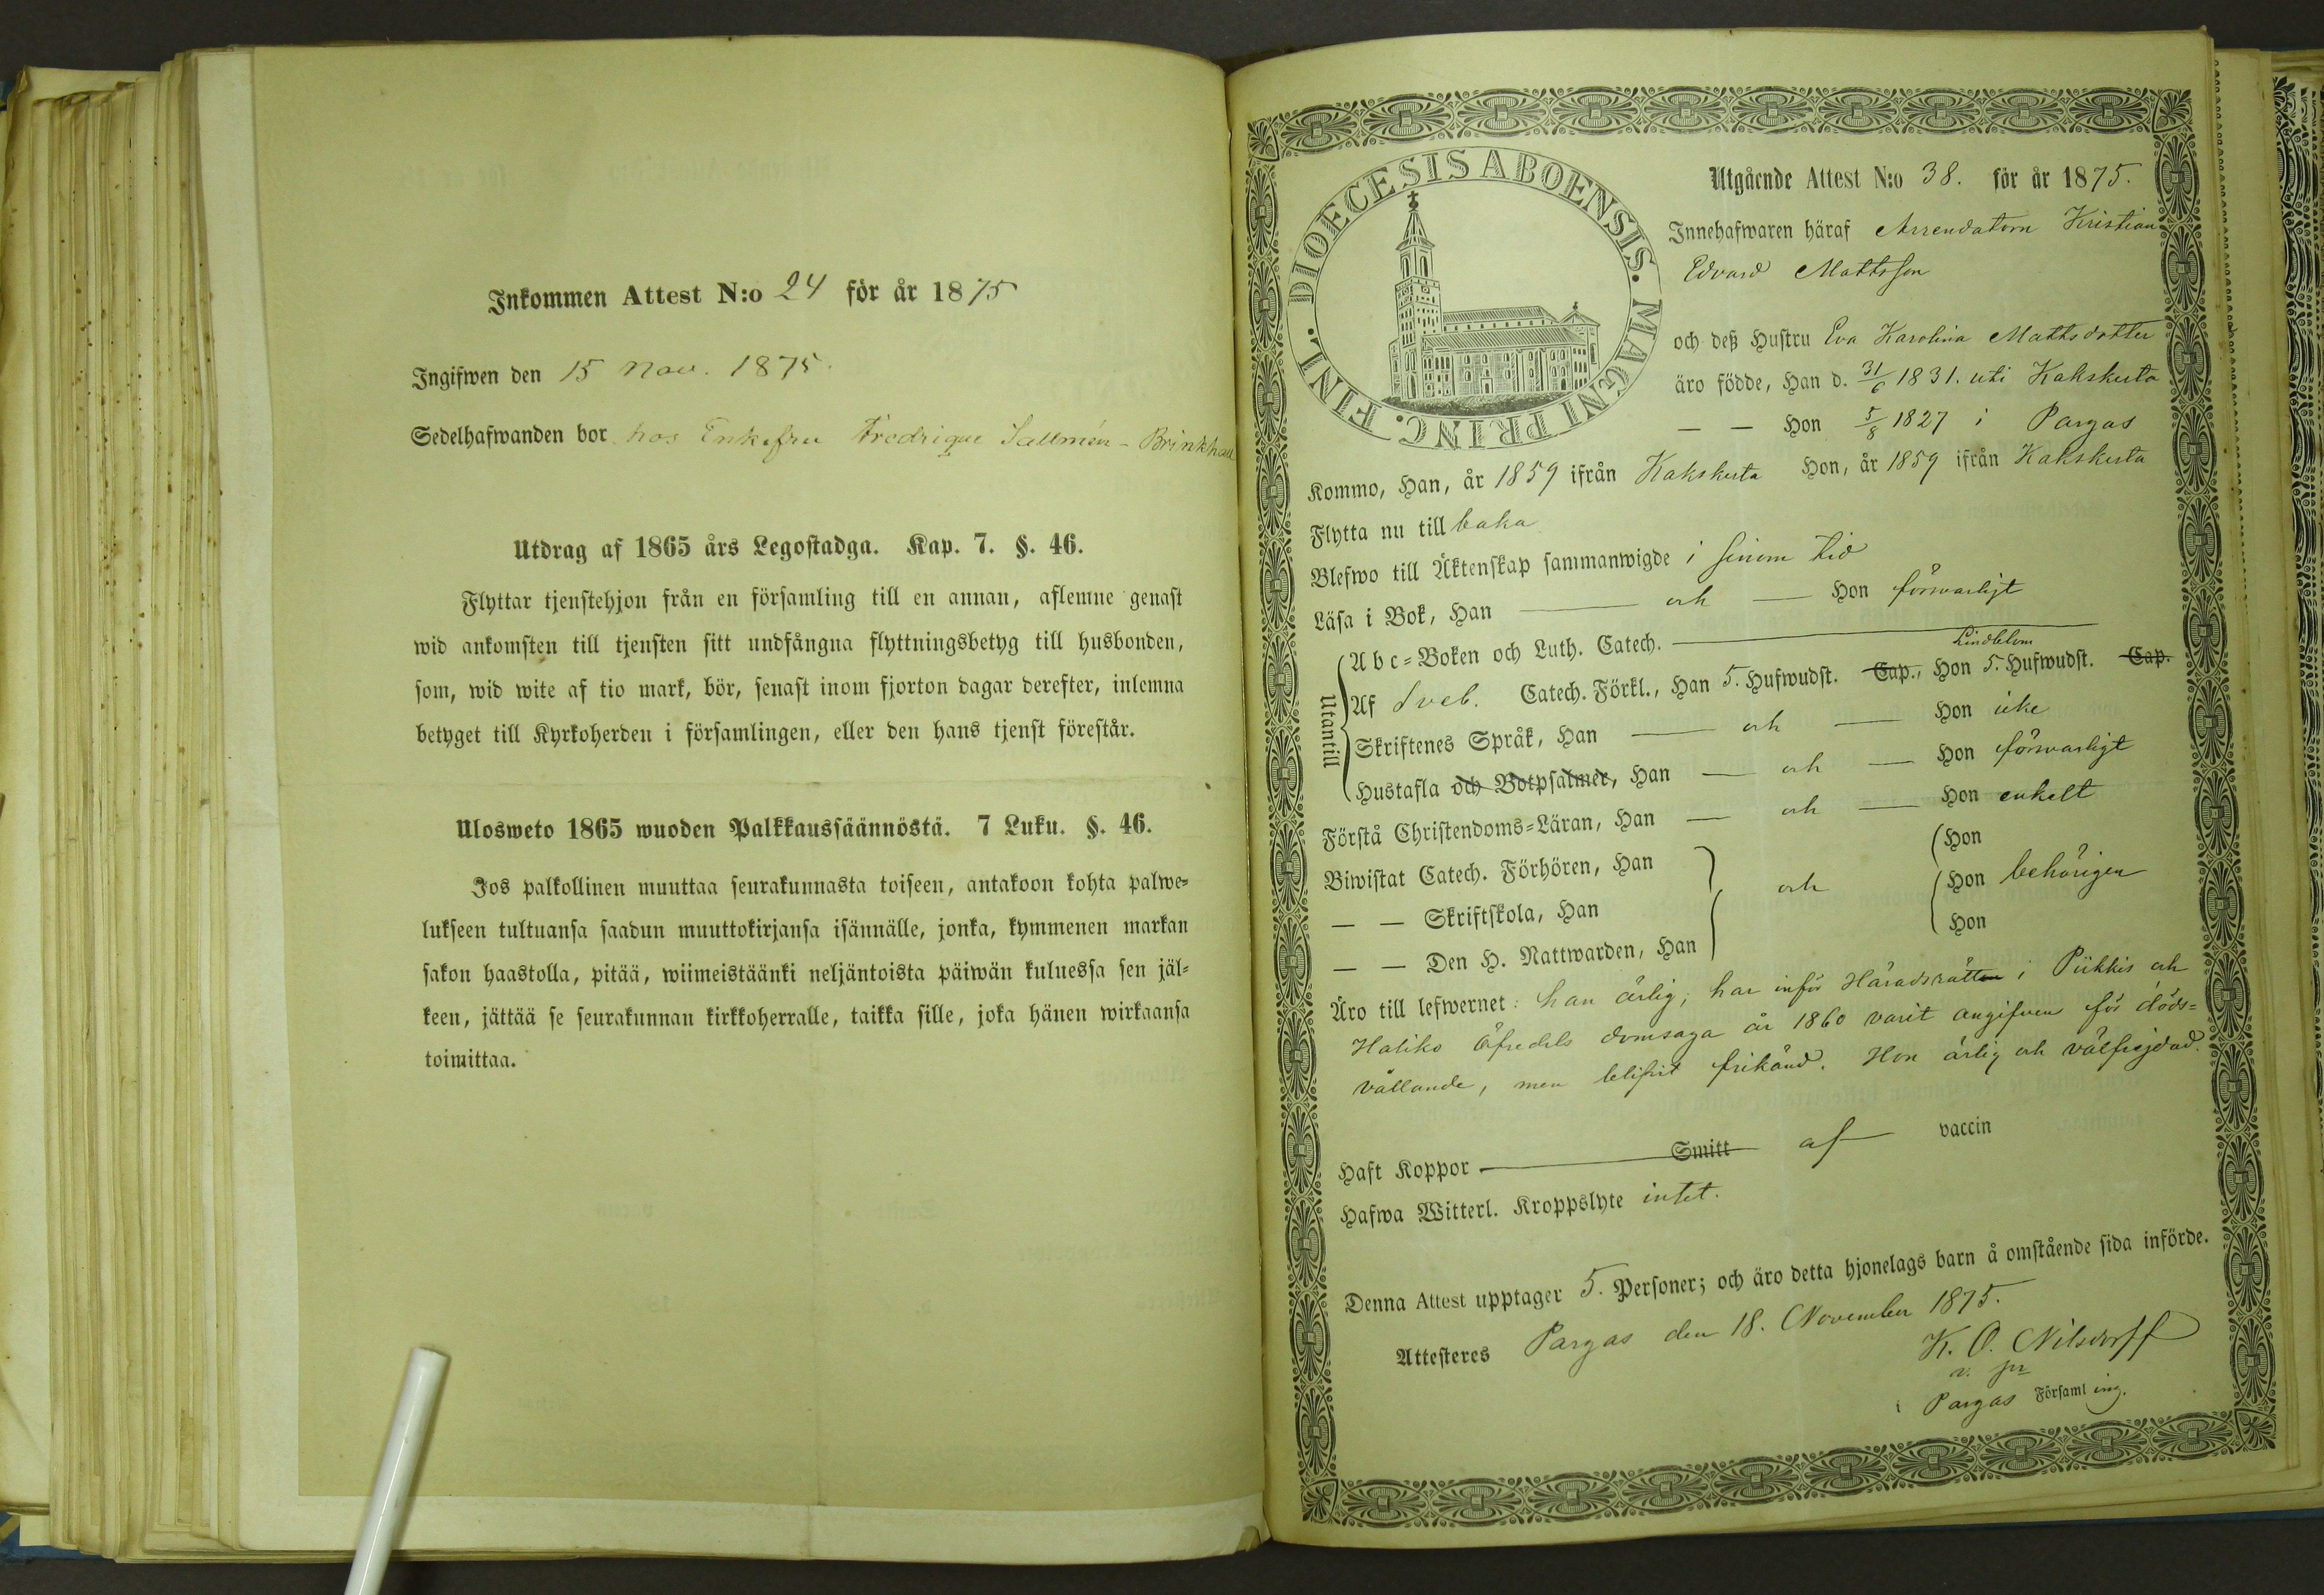 Inkommen Attest N:o 24 för år 1875
Ingifwen den 15 Nov. 1875.
Sedelhafwanden bor hos Enkefru Fredrique Sallmén - Brinkhall
Utdrag af 1865 års Legostadga. Kap. 7. §. 46.
Flyttar tjenstehjon från en församling till en annan, aflemne genast
wid ankomsten till tjensten sitt undfångna flyttningsbetyg till husbonden,
som, wid wite af tio mark, bör, senast inom fjorton dagar derefter, inlemna
betyget till Kyrkoherden i församlingen, eller den hans tjenst förestår.
Ulosweto 1865 wuoden Palkkaussäännöstä. 7 Luku. §. 46.
Jos palkollinen muuttaa seurakunnasta toiseen, antakoon kohta palwe=
lukseen tultuansa saadun muuttokirjansa isännälle, jonka, kymmenen markan
sakon haastolla, pitää, wiimeistäänki neljäntoista päiwän kuluessa sen jäl=
keen, jättää se seurakunnan kirkkoherralle, taikka sille, joka hänen wirkaansa
toimittaa.
DIOECESIS ABOENSIS. MAGNI PRINC. FINL.
Utgående Attest N:o 38. för år 1875.
Innehafwaren häraf Arrendatorn Kristian
Edvard Mattsson
och deß Hustru Eva Karolina Mattsdotter
äro födde, Han d. 31/6 1831. uti Kakskerta
— — Hon 5/8 1827 i Pargas
Kommo, Han, år 1859 ifrån Kakskerta Hon, år 1859 ifrån Kakskerta
Flytta nu till baka
Blefwo till Äktenskap sammanwigde i sinom tid
Läsa i Bok, Han — och — Hon försvarligt
Utantill
Abc=Boken och Luth. Catech. —
Lindblom
Af Sveb. Catech. Förkl., Han 5. Hufwudst. Cap., Hon 5. Hufwudst. Cap.
Skriftenes Språk, Han — och — Hon icke
Hustafla och Botpsalmer, Han — och — Hon försvarligt
Förstå Christendoms=Läran, Han — och — Hon enkelt
Biwistat Catech. Förhören, Han Hon
— — Skriftskola, Han och Hon behörigen
— — Den H. Nattwarden, Han Hon
Äro till lefwernet: han ärlig; har inför Häradsrätten i Piikkis och
Haliko Öfredels domsaga år 1860 varit angifven för döds=
vållande, men blifvit frikänd. Hon ärlig och välfrejdad.
Haft Koppor — Smitt af vaccin
Hafwa Witterl. Kroppslyte intet.
Denna Attest upptager 5. Personer; och äro detta hjonelags barn å omstående sida införde.
Attesteres Pargas den 18. November 1875.
K. O. Nilsdorff
v. pr
i Pargas Församling.